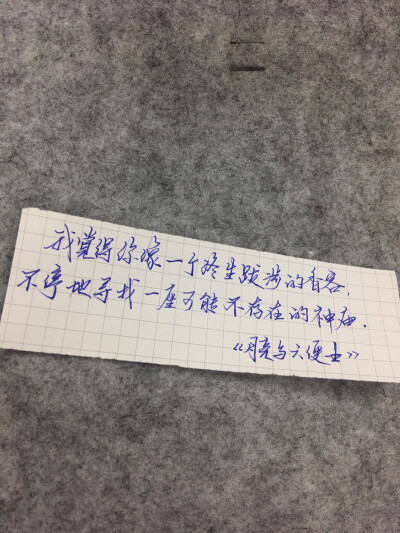 我觉得你像一个终生跋涉的香客，
不停地寻找一座可能不存在的神庙.
《月亮与六便士》